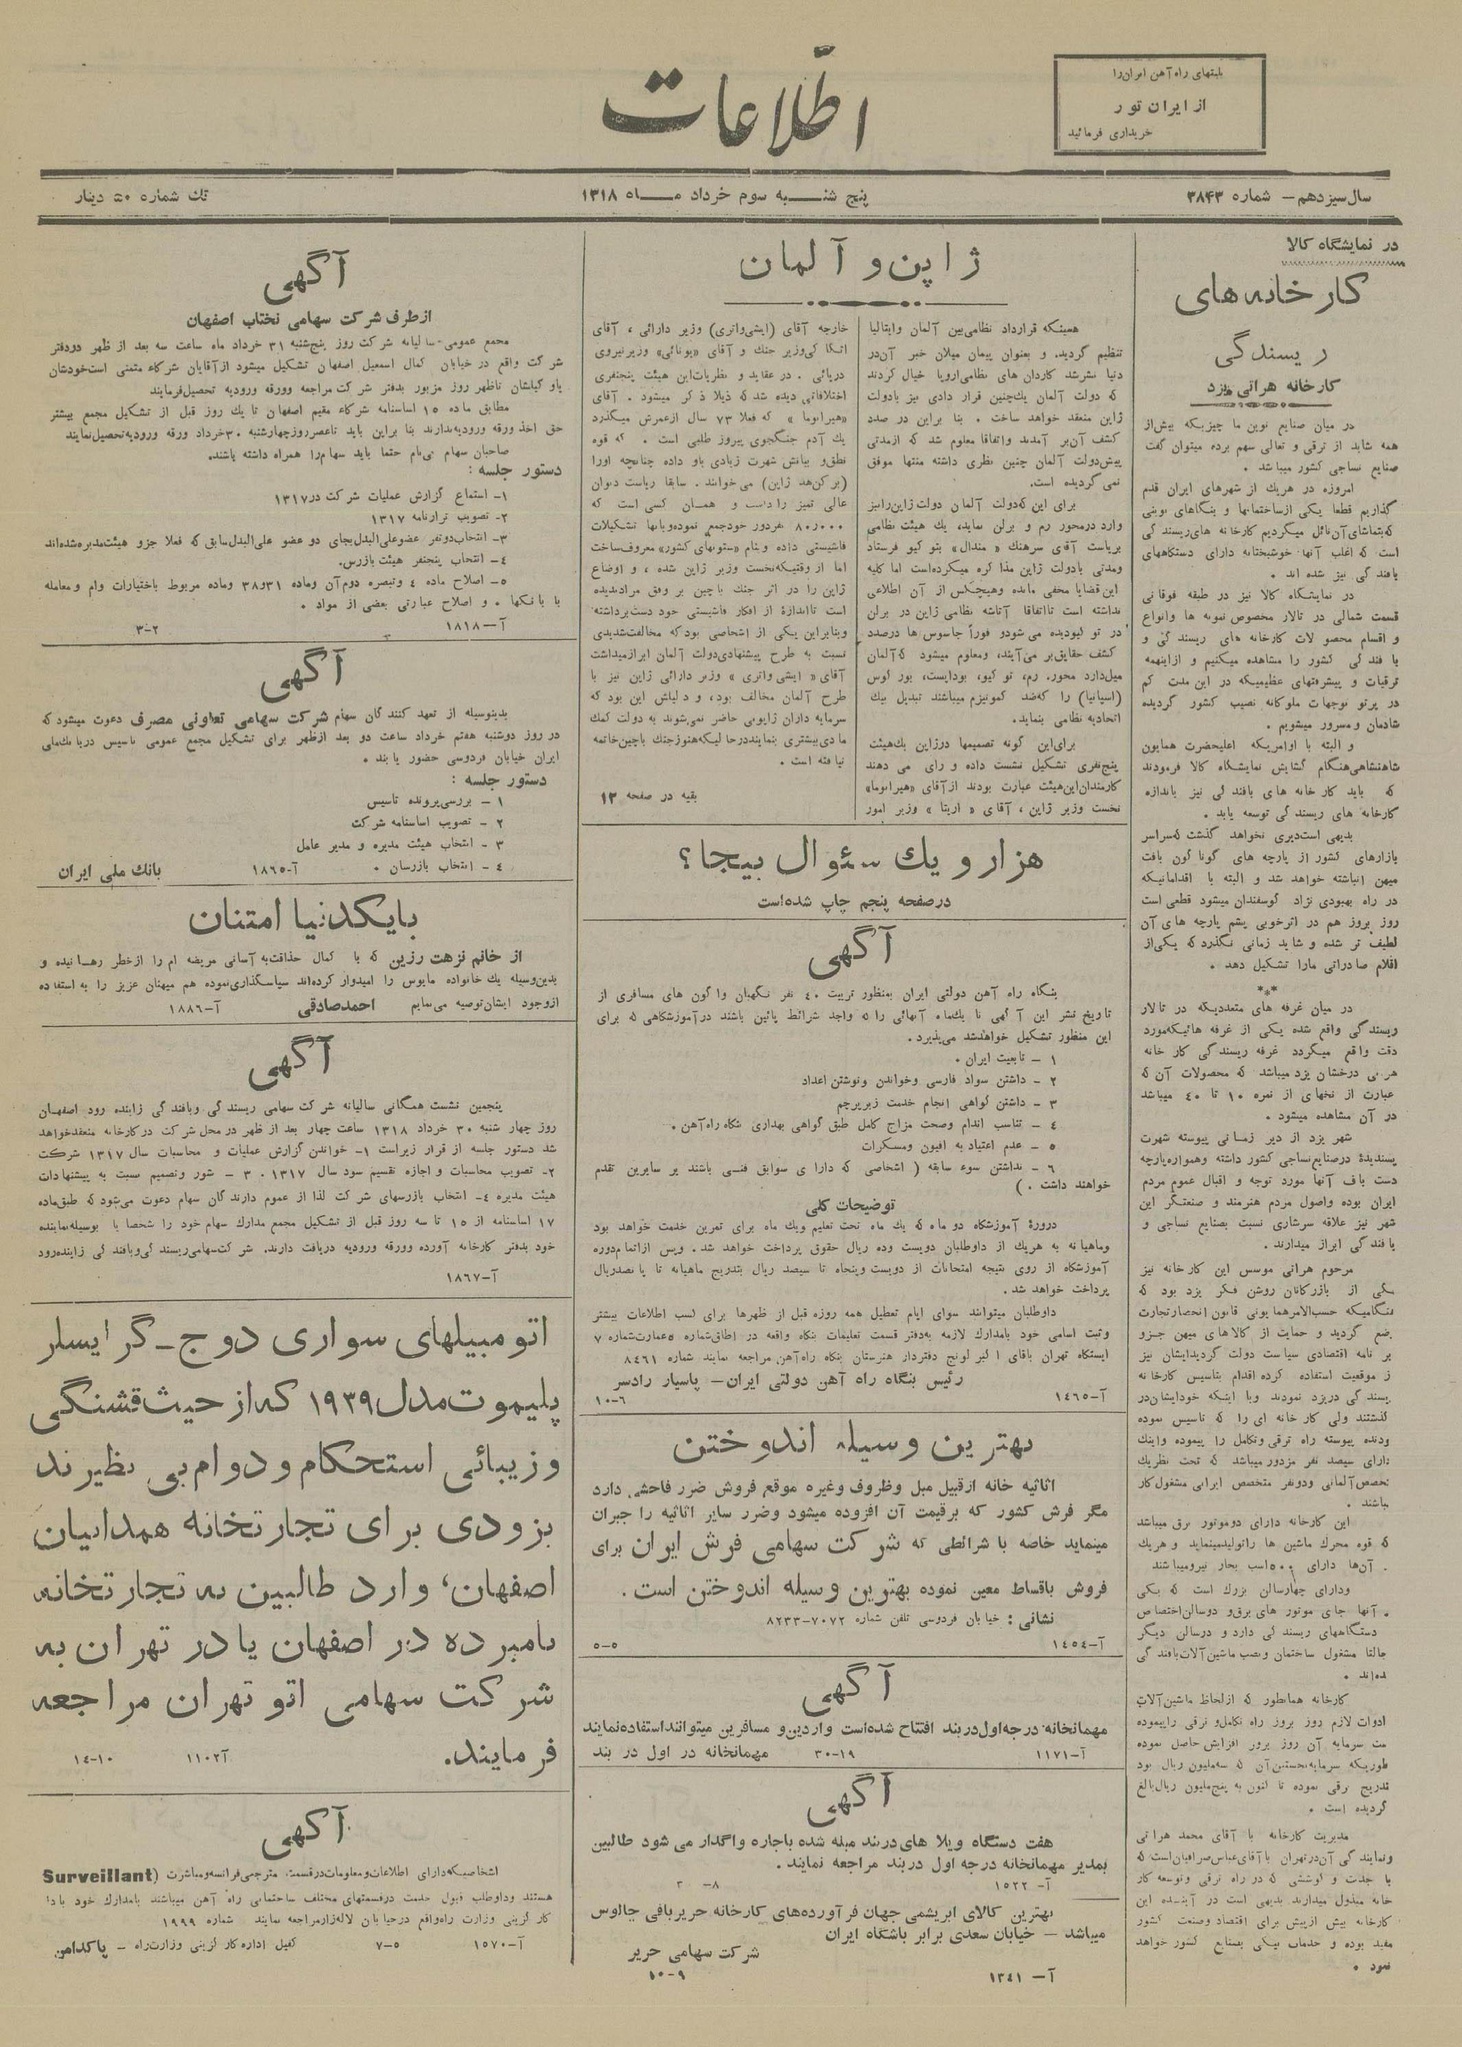 بلیتهای راه آهن ایران را
از ایران تور
خریداری فرمائید
اطلاعات
سال سیزدهم – شماره ۳۸۴۳
پنج شنبه سوم خرداد ماه ۱۳۱۸
تك شماره ۵۰ دینار
در نمایشگاه کالا
کارخانه های
ریسندگی
کارخانه هراتی یزد
در میان صنایع نوین ما چیزیکه بیش‌از
همه شاید از ترقی و تعالی سهم برده میتوان گفت
صنایع نساجی کشور میباشد .
امروزه در هریك از شهرهای ایران قدم
گذاریم قطعا یکی ازساختمانها و بنگاهای نوینی
که‌بتماشای آن نائل میگردیم کارخانه های ریسندگی
است که اغلب آنها خوشبختانه دارای دستگاههای
بافندگی نیز شده اند .
در نمایشگاه کالا نیز در طبقه فوقانی
قسمت شمالی در تالار مخصوص نمونه ها وانواع
و اقسام محصولات کارخانه های ریسندگی و
بافندگی کشور را مشاهده میکنیم و ازاینهمه
ترقیات و پیشرفتهای عظیمیکه در این مدت کم
در پرتو توجهات ملوکانه نصیب کشور گردیده
شادمان و مسرور میشویم .
و البته با اوامریکه اعلیحضرت همایون
شاهنشاهی‌هنگام گشایش نمایشگاه کالا فرمودند
که باید کارخانه های بافندگی نیز باندازه
کارخانه های ریسندگی توسعه یابد .
بدیهی است‌دیری نخواهد گذشت که‌سراسر
بازارهای کشور از پارچه های گوناگون بافت
میهن انباشته خواهد شد و البته با اقداماتیکه
در راه بهبودی نژاد گوسفندان میشود قطعی است
روز بروز هم در اثرخوبی پشم پارچه های آن
لطیف تر شده و شاید زمانی نگذرد که یکی‌از
اقلام صادراتی مارا تشکیل دهد .
***
در میان غرفه های متعددیکه در تالار
ریسندگی واقع شده یکی از غرفه هائیکه‌مورد
دقت واقع میگردد غرفه ریسندگی کارخانه
هراتی درخشان یزد میباشد که محصولات آن که
عبارت از نخهای از نمره ۱۰ تا ۴۰ میباشد
در آن مشاهده میشود .
شهر یزد از دیر زمانی پیوسته شهرت
پسندیدۀ درصنایع‌نساجی کشور داشته وهمواره‌پارچه
دست باف آنها مورد توجه و اقبال عموم مردم
ایران بوده واصول مردم هنرمند و صنعتگر این
شهر نیز علاقه سرشاری نسبت بصنایع نساجی و
بافندگی ابراز میدارند .
مرحوم هراتی موسس این کارخانه نیز
یکی از بازرگانان روشن فکر یزد بود که
هنگامیکه حسب‌الامرهمایونی قانون انحصارتجارت
وضع گردید و حمایت از کالاهای میهن جزو
برنامه اقتصادی سیاست دولت گردیدایشان نیز
از موقعیت استفاده کرده اقدام بتاسیس کارخانه
ریسندگی دریزد نمودند وبا اینکه خودایشان‌در
گذشتند ولی کارخانه ای را که تاسیس نموده
بودند پیوسته راه ترقی وتکامل را پیموده واینك
دارای سیصد نفر مزدور میباشد که تحت نظریك
متخصص‌آلمانی ودونفر متخصص ایرانی مشغول‌کار
میباشند .
این کارخانه دارای دوموتور برق میباشد
که قوه محرك ماشین ها راتولیدمینماید و هریك
آن‌ها دارای ۵۰۰اسب بخار نیرومیباشند
ودارای چهارسالن بزرك است که یکی
آنها جای موتور های برق‌و دوسالن‌اختصاص
دستگاههای ریسندگی دارد و درسالن دیگر
حالتا مشغول ساختمان ونصب ماشین‌آلات‌بافندگی
شده‌اند .
کارخانه همانطور که ازلحاظ ماشین‌آلات
ادوات لازم روز بروز راه تکامل‌و ترقی راپیموده
سرمایه آن روز بروز افزایش حاصل نموده
طوریکه سرمایه‌نخستین‌آن که سه‌ملیون ریال بود
بتدریج ترقی نموده تا کنون به پنج‌ملیون ریال‌بالغ
گردیده است .
مدیریت کارخانه با آقای محمد هراتی
ونمایندگی آن‌درتهران باآقای‌عباس‌صرافیان‌است‌که
با جدیت و کوششی که در راه ترقی وتوسعه کار
خانه مبذول میدارند بدیهی است در آینده این
کارخانه بیش ازپیش برای اقتصاد وصنعت کشور
مفید بوده و خدمات نیکی بصنایع کشور خواهد
نمود .
ژاپن و آلمان
همینکه قرارداد نظامی‌بین آلمان وایتالیا
تنظیم گردید و بعنوان پیمان میلان خبر آن‌در
دنیا نشرشد کاردان های نظامی‌اروپا خیال کردند
که دولت آلمان یك‌چنین قرار دادی نیز بادولت
ژاپن منعقد خواهد ساخت . بنا براین در صدد
کشف آن‌بر آمدند واتفاقا معلوم شد که ازمدتی
پیش‌دولت آلمان چنین نظری داشته منتها موفق
نمی گردیده است.
برای این که‌دولت آلمان دولت ژاپن‌رانیز
وارد درمحور رم و برلن نماید، یك هیئت نظامی
بریاست آقای سرهنك « مندال » بتوکیو فرستاد
ومدتی بادولت ژاپن مذاکره میکرده‌است اما کلیه
این قضایا مخفی مانده وهیچکس از آن اطلاعی
نداشته است تااتفاقا آتاشه نظامی ژاپن در برلن
در توکیودیده می‌شودو فوراً جاسوس ها درصدد
کشف حقایق‌بر می‌آیند، ومعلوم میشود که‌آلمان
میل‌دارد محور. رم، توکیو، بوداپست، بورگوس
(اسپانیا) را که‌ضد کمونیزم میباشند تبدیل بیك
اتحادیه نظامی بنماید.
برای‌این گونه تصمیمها درژاپن یك‌هیئت
پنج‌نفری تشکیل نشست داده و رای می دهند
کارمندان‌این‌هیئت عبارت بودند ازآقای «هیرانوما»
نخست وزیر ژاپن ، آقای « اریتا » وزیر امور
خارجه آقای (ایشی‌واتری) وزیر دارائی ، آقای
اتگاکی‌وزیر جنك و آقای «یونائی» وزیرنیروی
دریائی . در عقاید و نظریات‌این هیئت پنجنفری
اختلافاتی دیده شد که ذیلا ذکر میشود . آقای
«هیرانوما » که فعلا ۷۳ سال ازعمرش میگذرد
یك آدم جنگجوی پیروز طلبی است . که قوه
نطق‌و بیانش شهرت زیادی باو داده چنانچه اورا
(برکن‌هد ژاپن) می‌خوانند . سابقا ریاست دیوان
عالی تمیز را داشت و همان کسی است که
۸۰٫۰۰۰ نفردور خودجمع نموده‌وبانها تشکیلات
فاشیستی داده و بنام «ستونهای کشور» معروف‌ساخت
اما از وقتیکه‌نخست وزیر ژاپن شده ، و اوضاع
ژاپن را در اثر جنك باچین بر وفق مرادندیده
است تااندازۀ از افکار فاشیستی خود دست‌برداشته
وبنابراین یکی از اشخاصی بود‌که مخالفت‌شدیدی
نسبت به طرح پیشنهادی‌دولت آلمان ابرازمیداشت
آقای « ایشی‌واتری » وزیر دارائی ژاپن نیز با
طرح آلمان مخالف بود، و دلیلش این بود که
سرمایه داران ژاپونی حاضر نمی‌شوند به دولت کمك
مادی‌بیشتری بنمایند‌درحالیکه‌هنوزجنك باچین‌خاتمه
نیافته است .
بقیه در صفحه ۱۳
هزار و یك سئوال بیجا؟
درصفحه پنجم چاپ شده‌است
آگهی
بنگاه راه آهن دولتی ایران بمنظور تربیت ۴۰ نفر نگهبان واگون های مسافری از
تاریخ نشر این آگهی تا یك‌ماه آنهائی را که واجد شرائط پائین باشند درآموزشگاهی که برای
این منظور تشکیل خواهدشد می‌پذیرد .
۱ – تابعیت ایران .
۲ – داشتن سواد فارسی وخواندن ونوشتن اعداد
۳ – داشتن گواهی انجام خدمت زیرپرچم
٤ – تناسب اندام وصحت مزاج کامل طبق گواهی بهداری بنگاه راه‌آهن .
۵ – عدم اعتیاد به افیون ومسکرات
٦ – نداشتن سوء سابقه ( اشخاصی که دارای سوابق فنی باشند بر سایرین تقدم
خواهند داشت . )
توضیحات کلی
دورۀ آموزشگاه دو ماه که یك ماه تحت تعلیم ویك ماه برای تمرین خدمت خواهد بود
وماهیانه به هریك از داوطلبان دویست وده ریال حقوق پرداخت خواهد شد . وپس ازاتمام‌دوره
آموزشگاه از روی نتیجه امتحانات از دویست وپنجاه تا سیصد ریال بتدریج ماهیانه تا پانصدریال
پرداخت خواهد شد .
داوطلبان میتوانند سوای ایام تعطیل همه روزه قبل از ظهرها برای کسب اطلاعات بیشتر
وثبت اسامی خود بامدارك لازمه به‌دفتر قسمت تعلیمات بنگاه واقعه در اطاق‌شماره ۵عمارت‌شماره ۷
ایستگاه تهران باقای اکبر لونج دفتردار هنرستان بنگاه راه‌آهن مراجعه نمایند شماره ۸٤٦۱
رئیس بنگاه راه آهن دولتی ایران – پاسیار رادسر
آ–۱٤٦۵
۱۰–٦
بهترین وسیله اندوختن
اثاثیه خانه ازقبیل مبل وظروف وغیره موقع فروش ضرر فاحشی دارد
مگر فرش کشور که برقیمت آن افزوده میشود وضرر سایر اثاثیه را جبران
مینماید خاصه با شرائطی که شرکت سهامی فرش ایران برای
فروش باقساط معین نموده بهترین وسیله اندوختن است .
نشانی : خیابان فردوسی تلفن شماره ۷۰۷۲–۸۲۳۳
آ–۱٤۵٤
۵–۵
آگهی
مهمانخانه درجه‌اول‌دربند افتتاح شده‌است واردین‌و مسافرین میتوانند‌استفاده‌نمایند
آ–۱۱۷۱
۳۰–۱۹
مهمانخانه در اول در بند
آگهی
هفت دستگاه ویلا های دربند مبله شده باجاره واگذار می شود طالبین
بمدیر مهمانخانه درجه اول دربند مراجعه نمایند .
آ– ۱۵۲۲
۸–۳
بهترین کالای ابریشمی جهان فرآورده‌های کارخانه حریربافی چالوس
میباشد – خیابان سعدی برابر باشگاه ایران
شرکت سهامی حریر
آ– ۱۳٤۱
۱۰–۹
آگهی
ازطرف شرکت سهامی نختاب اصفهان
مجمع عمومی سالیانه شرکت روز پنج‌شنبه ۳۱ خرداد ماه ساعت سه بعد از ظهر دردفتر
شرکت واقع در خیابان کمال اسمعیل اصفهان تشکیل میشود ازآقایان شرکاء متمنی است‌خودشان
یاوکیلشان تاظهر روز مزبور بدفتر شرکت مراجعه وورقه ورودیه تحصیل‌فرمایند
مطابق ماده ۱۵ اساسنامه شرکاء مقیم اصفهان تا یك روز قبل از تشکیل مجمع بیشتر
حق اخذ ورقه ورودیه‌ندارند بنا براین باید تاعصرروزچهارشنبه ۳۰خرداد ورقه ورودیه‌تحصیل‌نمایند
صاحبان سهام بی‌نام حتما باید سهام‌را همراه داشته باشند.
دستور جلسه :
۱– استماع گزارش عملیات شرکت در۱۳۱۷
۲– تصویب ترازنامه ۱۳۱۷
۳– انتخاب‌دونفر عضوعلی‌البدل‌بجای دو عضو علی‌البدل‌سابق‌که فعلا جزو هیئت‌مدیره‌شده‌اند
٤– انتخاب پنجنفر هیئت بازرس.
۵– اصلاح ماده ٤ وتبصره دوم‌آن وماده ۳۱و۳۸ وماده مربوط باختیارات وام و معامله
با بانکها . و اصلاح عبارتی بعضی از مواد .
آ–۱۸۱۸
۳–۲
آگهی
بدینوسیله از تعهد کنندگان سهام شرکت سهامی تعاونی مصرف دعوت میشود که
در روز دوشنبه هفتم خرداد ساعت دو بعد ازظهر برای تشکیل مجمع عمومی تاسیس دربانك‌ملی
ایران خیابان فردوسی حضور یابند .
دستور جلسه :
۱ – بررسی‌پرونده تاسیس
۲ – تصویب اساسنامه شرکت
۳ – انتخاب هیئت مدیره و مدیر عامل
٤ – انتخاب بازرسان .
آ–۱۸٦۵
بانك ملی ایران
بایکدنیا امتنان
از خانم نزهت رزین که با کمال حذاقت‌به آسانی مریضه ام را ازخطر رهانیده و
بدین‌وسیله یك خانواده مایوس را امیدوار کرده‌اند سپاسگذاری‌نموده هم میهنان عزیز را به‌استفاده
ازوجود ایشان‌توصیه می‌نمایم
احمدصادقی
آ–۱۸۸٦
آگهی
پنجمین نشست همگانی سالیانه شرکت سهامی ریسندگی وبافندگی زاینده رود اصفهان
روز چهار شنبه ۳۰ خرداد ۱۳۱۸ ساعت چهار بعد از ظهر در محل شرکت در کارخانه منعقدخواهد
شد دستور جلسه از قرار زیراست ۱– خواندن گزارش عملیات و محاسبات سال ۱۳۱۷ شرکت
۲– تصویب محاسبات و اجازه تقسیم سود سال ۱۳۱۷ . ۳ – شور وتصمیم نسبت به پیشنهادات
هیئت مدیره ٤– انتخاب بازرسهای شرکت لذا از عموم دارندگان سهام دعوت می‌شود که طبق‌ماده
۱۷ اساسنامه از ۱۵ تا سه روز قبل از تشکیل مجمع مدارك سهام خود را شخصا یا بوسیله‌نماینده
خود بدفتر کارخانه آورده وورقه ورودیه دریافت دارند. شرکت‌سهامی‌ریسندگی‌وبافندگی زاینده‌رود
آ–۱۸٦۷
اتومبیلهای سواری دوج – گرایسلر
پلیموت مدل ۱۹۳۹ که از حیث قشنگی
و زیبائی استحکام و دوام بی نظیرند
بزودی برای تجارتخانه همدانیان
اصفهان، وارد طالبین به تجارتخانه
نامبرده در اصفهان یا در تهران به
شرکت سهامی اتو تهران مراجعه
فرمایند.
آ۱۱۰۲
۱٤–۱۰
آگهی
اشخاصیکه‌دارای اطلاعات‌ومعلومات‌درقسمت مترجمی‌فرانسه‌ومباشرت (Surveillant
هستند وداوطلب قبول خدمت درقسمتهای مختلف ساختمانی راه آهن میباشند بامدارك خود باداره
کارگزینی وزارت راه‌واقع درخیابان لاله‌زارمراجعه نمایند شماره ۱۹۹۹
آ–۱۵۷۰
۷–۵
کفیل اداره‌کارگزینی وزارت‌راه – پاکدامن